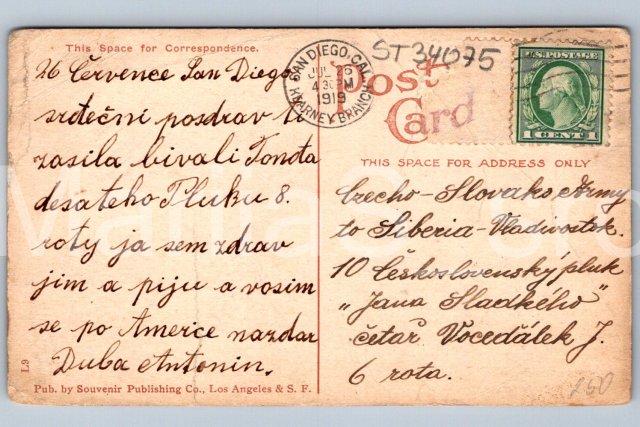 This Space for Correspondence.
26 Července San Diego
srdečni pozdrav ti
zasila bivali Tonota
desateho Pluku 8.
roty ja sem zdrav
jim a piju a vosim
se po Americe nazdar
Duba Antonin.
L9
Pub. by Souvenir Publishing Co., Los Angeles & S. F.
SAN DIEGO, CAL.
JUL 26
4 30 PM
1919
KEARNEY BRANCH
ST34075
Post
Card
U.S. POSTAGE
1 CENT 1
THIS SPACE FOR ADDRESS ONLY
Czecho-Slovaks Army
to Siberia-Vladivostok.
10 Československý pluk
„Jana Sladkého"
četař Vocedálek J.
6 rota.
250